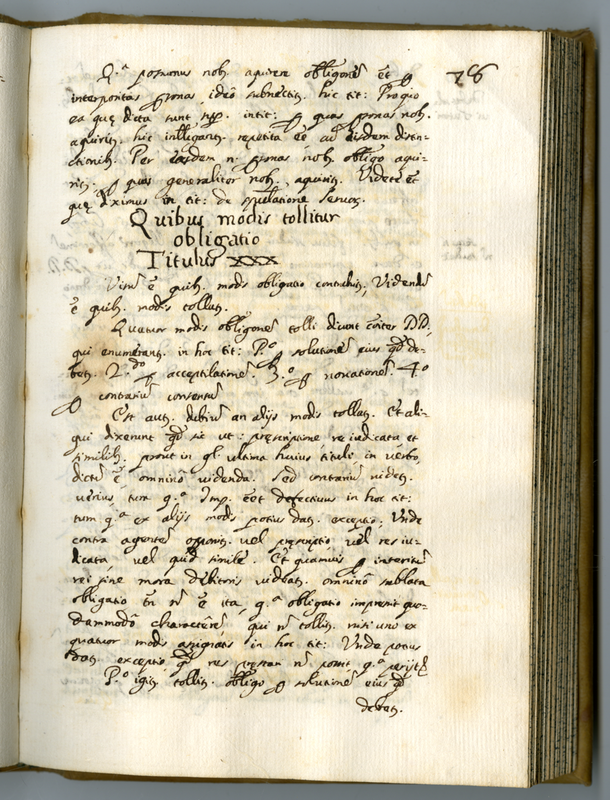 Q.ª possumus nob. aquirere obligoñes et
interpositas psonas, ideò subnectit. hic tit: Pro quo
ea que dicta sunt sup. in tit: p quas psonas nob.
aquirit. hic intelligant. repetita eē cũ eisdem distin-
ctionib. Per easdem n. psonas nob. obligo aqui-
rit. p quas generaliter nob. aquirit. Videte et
que diximus in tit: de stipulatione servor.
Quibus modis tollitur
obligatio
Titulus XXX
Visũ ē quib. modis obligatio contrahit., Videndũ
ē quib. modis tollat.
Quatuor modis obligoñes tolli dicunt cōiter DD,
qui enumerant. in hoc tit: P.º p solutionē eius qd de-
bet. 2.do p acceptilationē. 3.º p novationē. 4.º
p contrariũ consensũ
Est aut. dubiũ an alijs modis tollat. Et ali-
qui dixerunt qd sic ut: prescriptione re iudicata et
similib. prout in gl. ultima huius tituli in verbo
dictũ ē omninò videnda. Sed contrariũ videt.
verius, tum q.ª Imp. eēt defectivus in hoc tit:
tum q.ª ex alijs modis potius dat. exceptio, Unde
contra agentẽ opponit. vel prescriptio vel res iu-
dicata, vel quid simile. Et quamvis p interitũ
rei sine mora debitoris videat. omninò sublata
obligatio tñ nõ ē ita, q.ª obligatio imprimit quo-
dammodò characterẽ, qui nõ tollit. nisi uno ex
quatuor modis assignatis in hoc tit: Unde potius
dat. exceptio, qd res prestari nõ possit q.ª perijt
P.º igit. tollit. obligo p solutionẽ eius qd
debet.